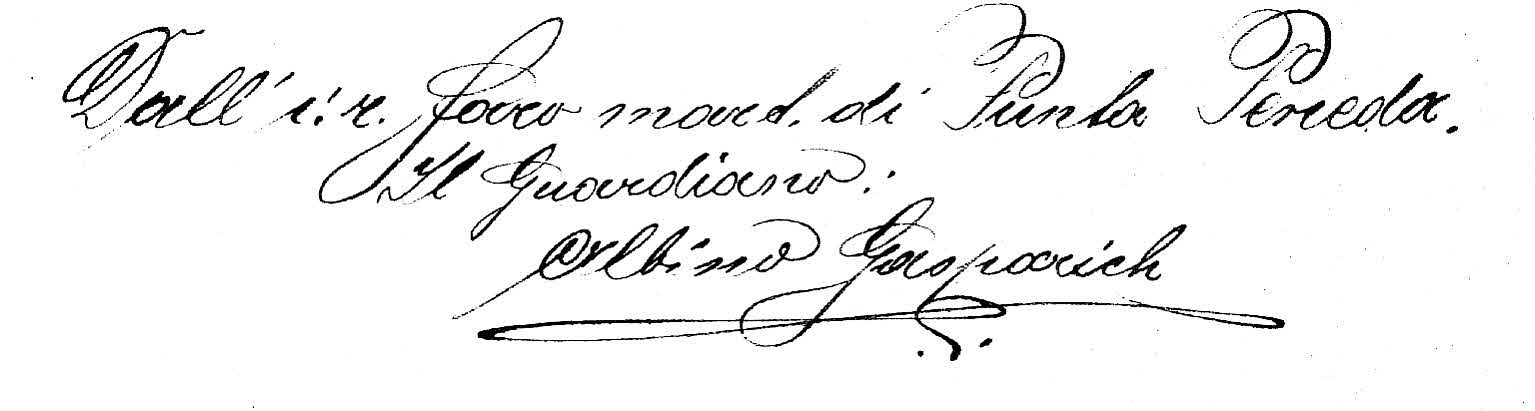 Dall' i. r. faro mard. di Punta Peneda.
Il Guardiano:
Albino Gasparich